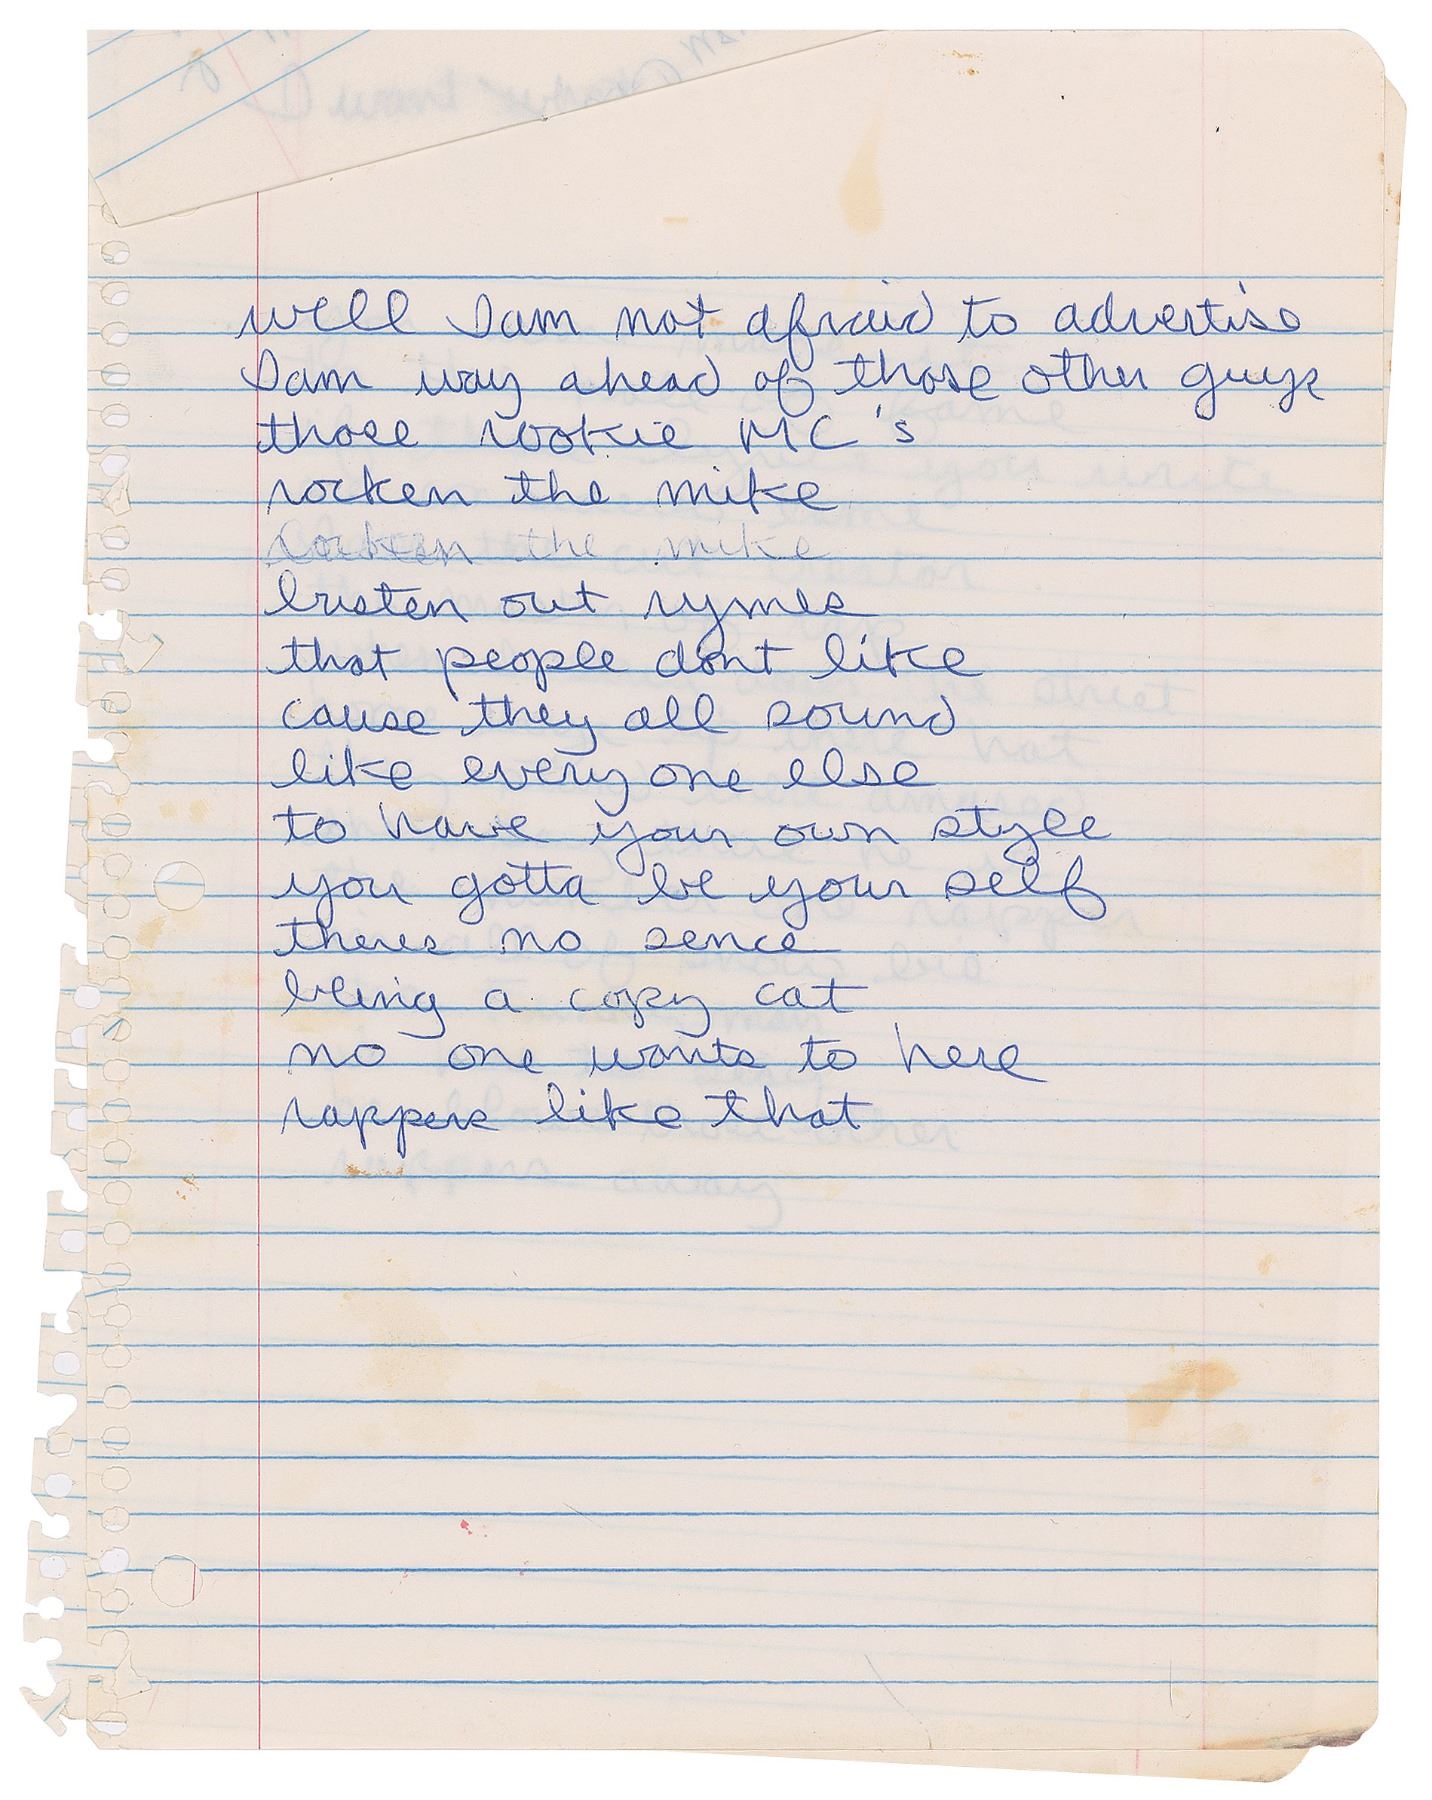 well I am not afraid to advertise
I am way ahead of those other guys
those rookie MC's
rocken the mike
rocken the mike
busten out rymes
that people dont like
cause they all sound
like everyone else
to have your own style
you gotta be your self
theres no sence
being a copy cat
no one wants to here
rappers like that